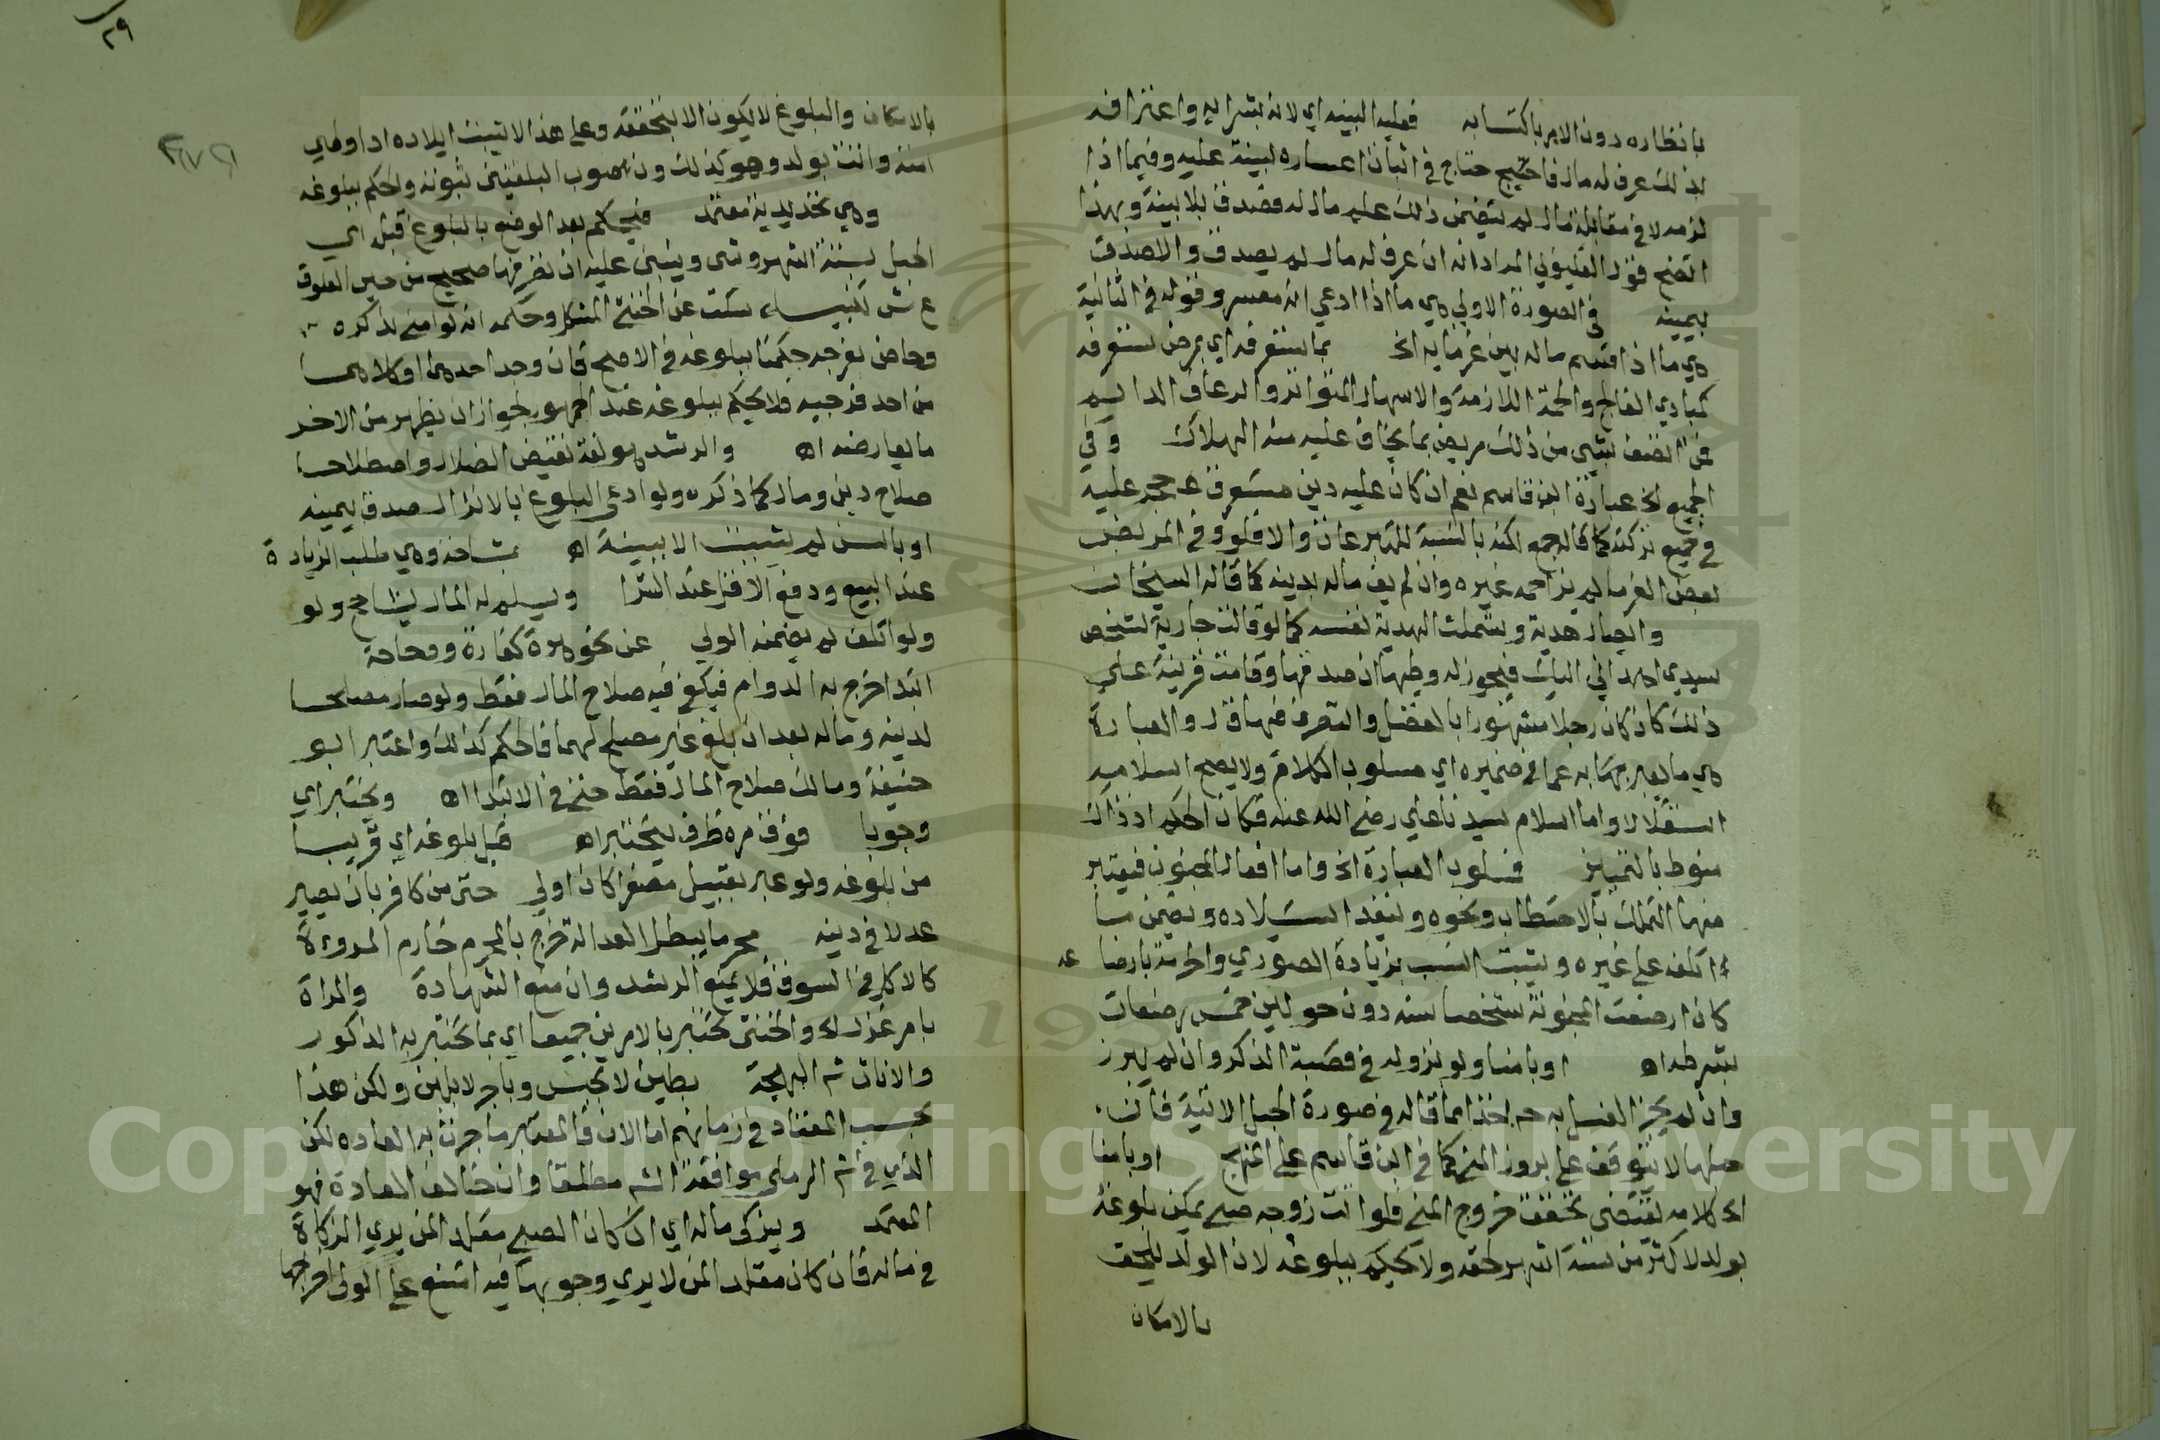 بانظاره دون الامر باكتسابه فعليه البينه اي لانه بشرائه واعترافه
بذلك عرف له مال فاحتيج في اثبات اعساره لبينة عليه وفيما اذا
لزمه لا في مقابلة مال لم يتضمن ذلك علم مال له فصدق بلا بينة وبهذا
اتضح قول القليوبي المراد انه ان عرف له مال لم يصدق والا صدق
بيمينه في الصورة الاولي هي ما اذا ادعي انه معسر وقوله في الثانية
هي ما اذا قسم ماله بين غرمايه اخ بما يستغرقه اي بمرض يستغرقه
كمبادي الفالج والحمة اللازمة والاسهال المتواتر والرعاف الدايم
فمن اتصف بشي من ذلك مريض بما يخاف عليه منه الهلاك وفي
الجميع اخ عبارة ابن قاسم نعم ان كان عليه دين مستغرق حجر عليه
في جميع تركته كما قاله جمع لكنه بالنسبة للتبرعات والا فلو وفي المريض
بعض الغرما لم يزاحمه غيره وان لم يف ماله بدينه كما قاله الشيخان
وايصال هدية وشملت الهدية نفسه كما لو قالت جارية لشخص
سيدي اهداني اليك فيجوز له وطيها ان صدقها وقامت قرينة علي
ذلك كان كان رجلا مشهورا بالفضل والتصرف فيها ق ل والعبارة
هي ما يعبر بها به عما في ضميره اي مسلوب الكلام ولا يصح اسلامه
استقلالا واما اسلام سيدنا علي رضي الله عنه فكان الحكم اذ ذاك
منوط بالتمييز فسلوب العبارة اخ واما افعال المجنون فيعتبر
منها التملك بالاحتطاب ونحوه وينفذ استيلاده ويضمن ما
اتلفه علي غيره ويثبت النسب بزيادة الصوري والحرمة بارضاعه
كان ارضعت المجنونة شخصا سنه دون حولين خمس رضعات
بشرطه اه او بامنا ولو نزوله في قصبة الذكر وان لم يبرز
وان لم يجز الغسل به حـ اخذا مما قاله في صورة الحبل الاتية فان
حملها لا يتوقف علي بروز المني كما في ابن قاسم علي المنهج او بامنا
اخ كلامه يقتضي تحقق خروج المني فلو اتت زوجه صبي يمكن بلوغه
بولد لاكثر من ستة اشهر لحقه ولا يحكم ببلوغه لان الولد يلحق
بالامكان
٢٩
بالامكان والبلوغ لا يكون الا بتحققه وعلي هذا لا يثبت ايلاده اذا وطي
امته واتت بولد وهو كذلك وتصوب البلقيني ثبوته والحكم ببلوغه
وهي تحديدية معتمد فيحكم بعد الوضع بالبلوغ قبله اي
الحبل بستة اشهر وشي وينبني عليه ان تصرفها صحيح من حين العلوق
ع ش تنبيه سكت عن الخنثي المشكل وحكمه انه لو امني بذكره
وحاض بفرجه حكمنا ببلوغه في الاصح فان وجد احدهما او كلاهما
من احد فرجيه فلا يحكم ببلوغه عند الجمهور لجواز ان يظهر من الاخر
ما يعارضه اه والرشد هو لغة نقيض الضلال واصطلاحا
صلاح دين ومال كما ذكره ولو ادعي البلوغ بالانزال صدق بيمينه
او بالسن لم يثبت الا ببينة اه بمشاحة وهي طلب الزيادة
عند البيع ودفع الاقل عند الشرا ويسلم له المال ليشاحح ولو
ولو اتلف لم يضمنه الولي عن نحو هرة كفارة وفحاحة
ابتدا خرج به الدوام فيكفي فيه صلاح المال فقط ولو صار مصلحا
لدينه وماله بعد ان بلغ غير مصلح لهما فالحكم كذلك واعتبر ابو
حنيفة ومالك صلاح المال فقط حتي في الابتدا اه ويختبر اي
وجوبا فوق مرة ظرف ليختبر اه قبل بلوغه اي قريبا
من بلوغه ولو عبر بقبيل مصغرا كان اولي حتي من كافر بان يصير
عدلا في دينه محرما يبطل العدالة خرج بالمحرم خارم المروءة
كالاكل في السوق فلا يمنع الرشد وان منع الشهادة والمراة
بامر غزل اخ والخنثي يختبر بالامرين جميعا اي بما يختبر به الذكور
والاناث ش البهجة بطين لا بجبس وباجر لا بلبن ولكن هذا
بحسب المعتاد في زمانهم اما الان فالمعتبر ما جرت به العاده لكن
الذي في ش الرملي موافقة الش مطلقا وان خالف العادة فهو
المعتمد ويزكي ماله اي ان كان الصبي مقلد المن يري الزكاة
في ماله فان كان مقلد المن لا يري وجوبها فيه امتنع علي الولي اخراجها
Copyright © King Saud University